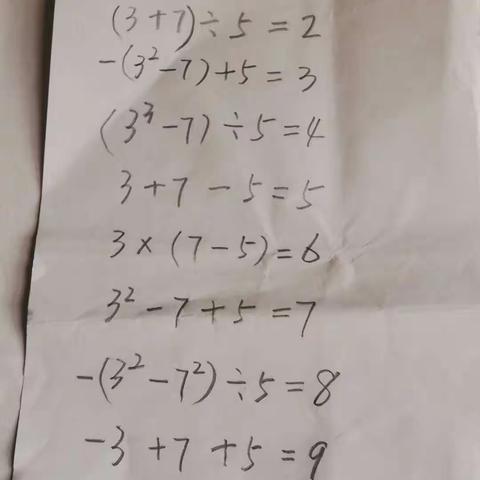 (3+7)÷5=2
-(3²-7)+5=3
(3³-7)÷5=4
3+7-5=5
3×(7-5)=6
3²-7+5=7
-(3²-7²)÷5=8
-3+7+5=9